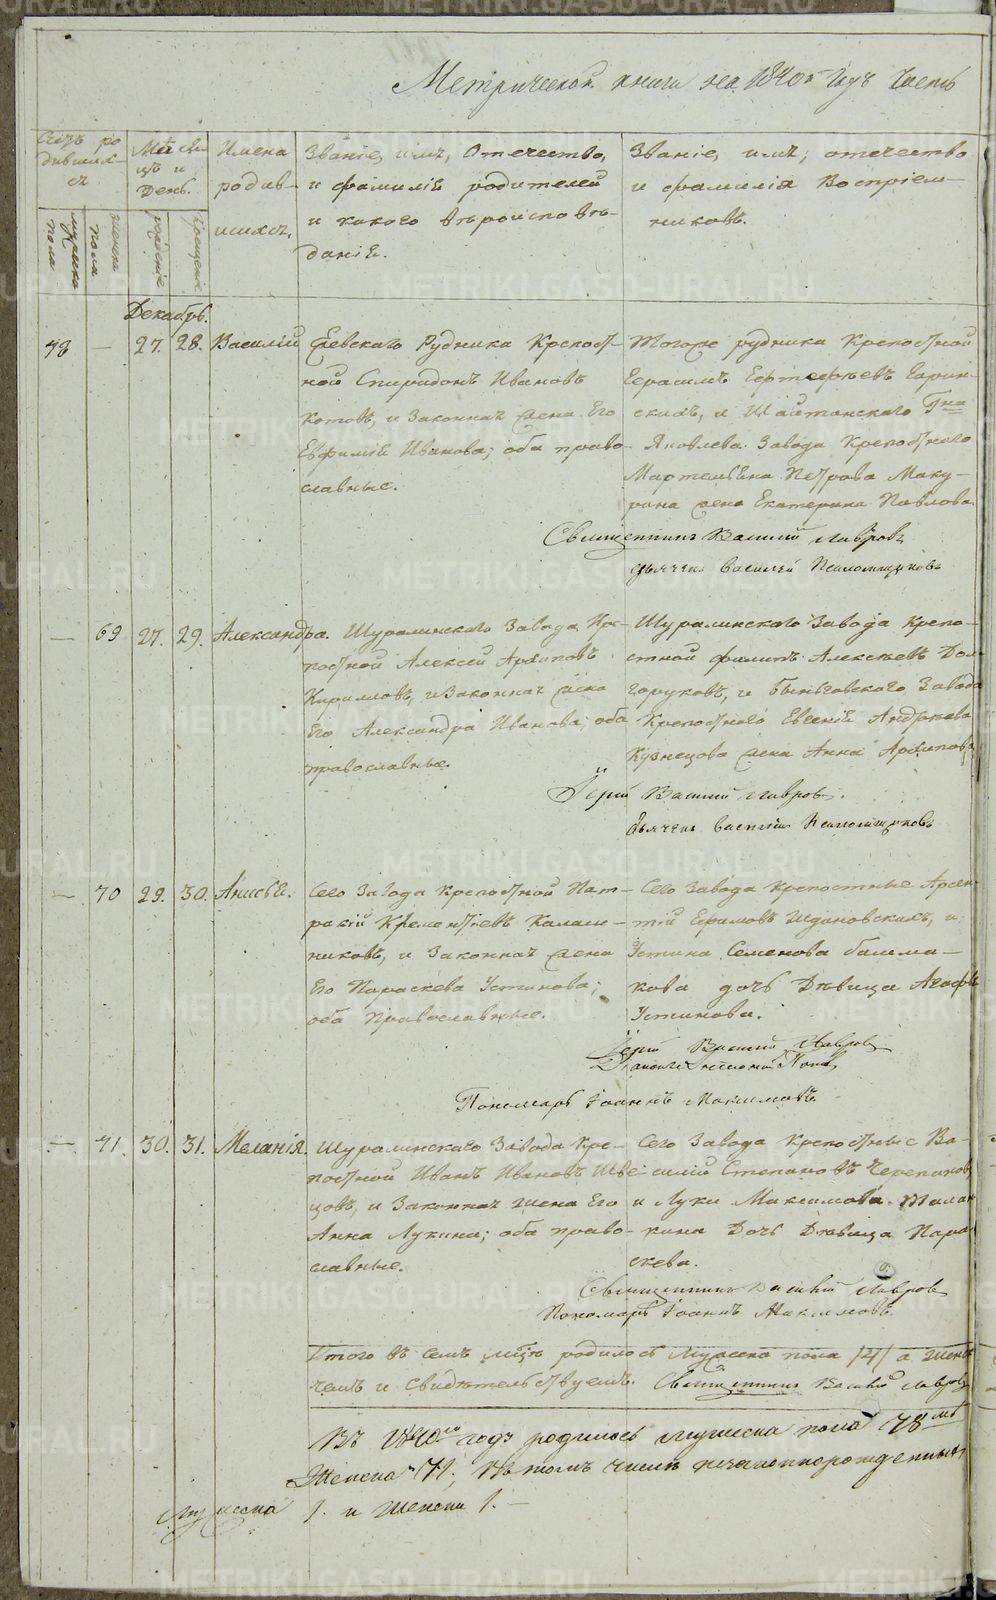 Метрической книги на 1840й Годъ Часть
Счетъ ро
дившихся
Мѣсяцъ и
День.
Имена
родив-
шихся,
Званіе, имя, Отечество,
и фамилія родителей
и какого вѣроисповѣ-
данія.
Званіе, имя, отечество
и фамилія Воспріем-
никовъ.
мужеска пола
женска пола
рожденіе
крещеніе
Декабрь.
78 — 27. 28. Василій
Рудника Крепост-
ной Спиридонъ Ивановъ
Котовъ, и Законная жена Его
Евфимія Иванова; оба право-
славные.
Тогоже рудника Крепостной
Герасимъ
скихъ, и Шайтанскаго Гна
Яковлева Завода Крепостнаго
Мартемьяна Петрова Маку-
рина жена Екатерина Павлова
Священникъ Василий Лавровъ
дьячекъ Василей Псаломщиковъ
— 69 27. 29. Александра.
Шуралинскаго Завода Кре-
постной Алексей Архиповъ
Кириловъ, и Законная жена
Его Александра Иванова; оба
православные.
Шуралинскаго Завода Крепо-
стной филипъ Алексѣевъ Дол-
горуковъ, и Быньговскаго Завода
Крепостнаго Евсенія Андреева
Кузнецова жена Анна Архипова
Іерей Василий Лавровъ.
Дьячекъ Василий Псаломщиковъ
— 70 29. 30. Анисья.
Сего Завода Крепостной Пат-
ракій Клементьевъ Калаш-
никовъ, и Законная жена
Его Параскева Устинова;
оба Православные.
Сего Завода Крепостные Арсен-
тій Ефимовъ Ждановскихъ, и
Устина Семенова башма-
кова дочь Дѣвица Агафья
Устинова.
Іерей Василий Лавровъ
Поповъ
Пономарь Іоаннъ Максимовъ
— 71. 30. 31. Меланія.
Шуралинскаго Завода Кре-
постной Иванъ Ивановъ Шве-
цовъ, и Законная жена Его
Анна Лукина; оба право-
славные.
Сего Завода Крепостные Ва-
силій Степановъ Черепановъ,
и Луки Максимова
кина Дочь Дѣвица Пара-
скева.
Священникъ Василий Лавровъ
Пономарь Іоаннъ Максимовъ.
Итого въ семъ мцѣ родилось Мужеска пола /4/ а женска
чемъ и Свидѣтельствуемъ. Священникъ Василий Лавровъ
Въ 1840мъ годѣ родилось мужеска пола 78мь
Женска 71; Въ томъ числѣ незаконнорожденныхъ
Мужеска 1. и Женска 1. —
METRIKI.GASO-URAL.RU